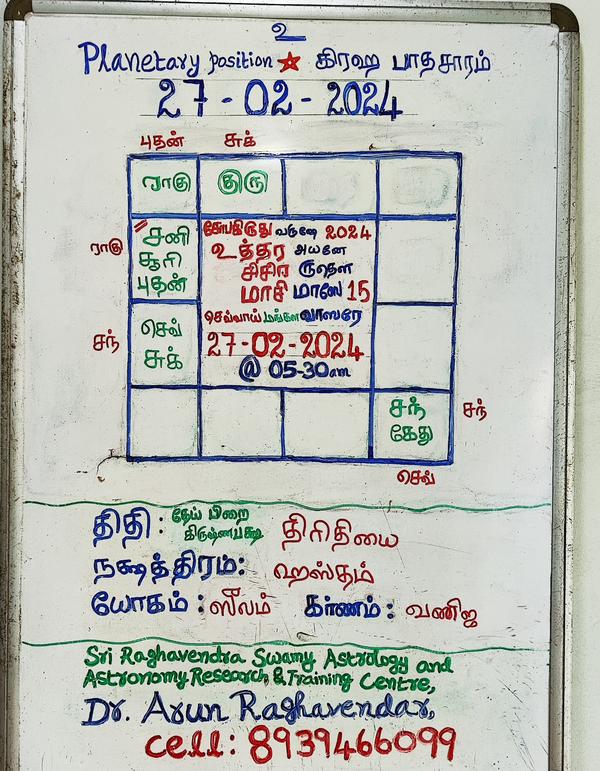 உ
Planetary position ☆ கிரஹ பாதசாரம்
27-02-2024
புதன் சுக்
ராகு குரு
ராகு
சனி
சூரி
புதன்
சோபகிருது வருஷே 2024
உத்தர அயனே
சிசிர ருதௌ
மாசி மாஸே 15
செவ்வாய் மங்கள வாஸரே
27-02-2024
@ 05-30am
சந்
செவ்
சுக்
சந்
கேது
சந்
செவ்
திதி: தேய் பிறை
கிருஷ்ணபக்ஷ திரிதியை
நக்ஷத்திரம்: ஹஸ்தம்
யோகம்: ஸீலம் கர்ணம்: வணிஜ
Sri Raghavendra Swamy Astrology and
Astronomy Research & Training Centre,
Dr. Arun Raghavendar,
cell: 8939466099